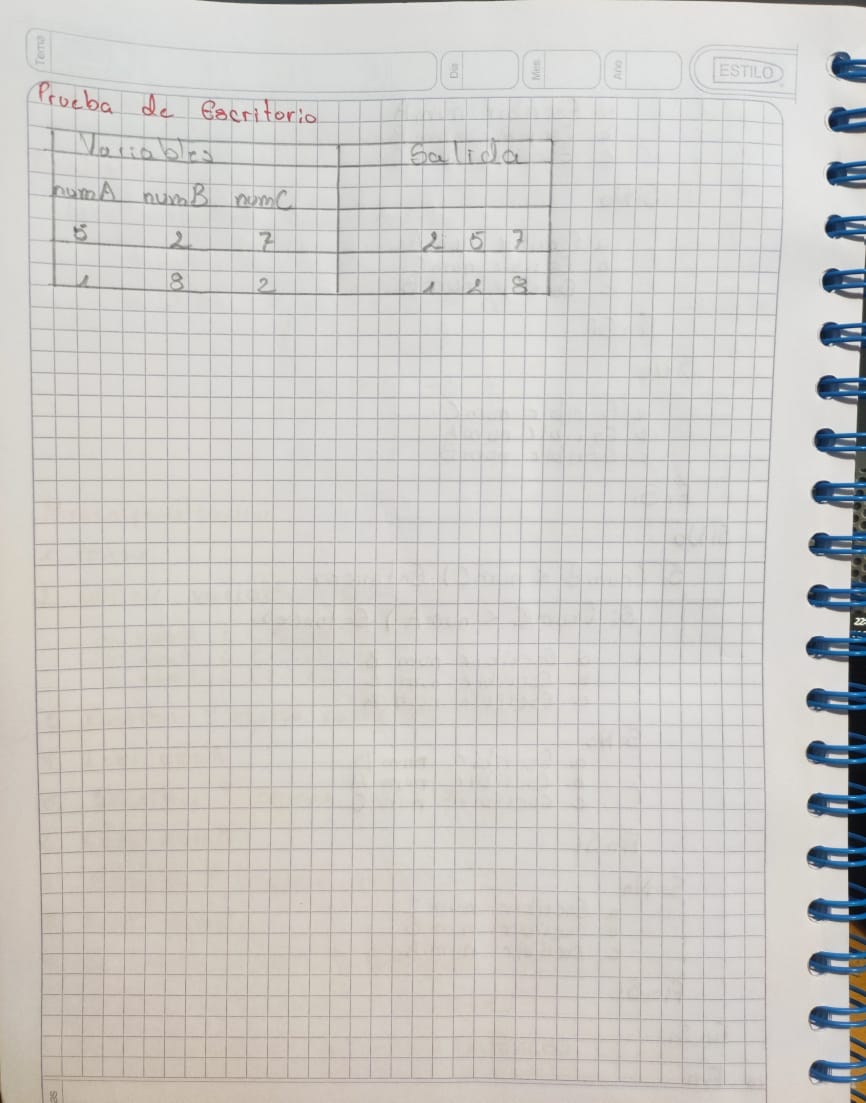 Tema
Dia
Mes
Año
ESTILO
Prueba de Escritorio
Variables Salida
numA numB numC
5 2 7 2 5 7
1 8 2 1 2 8